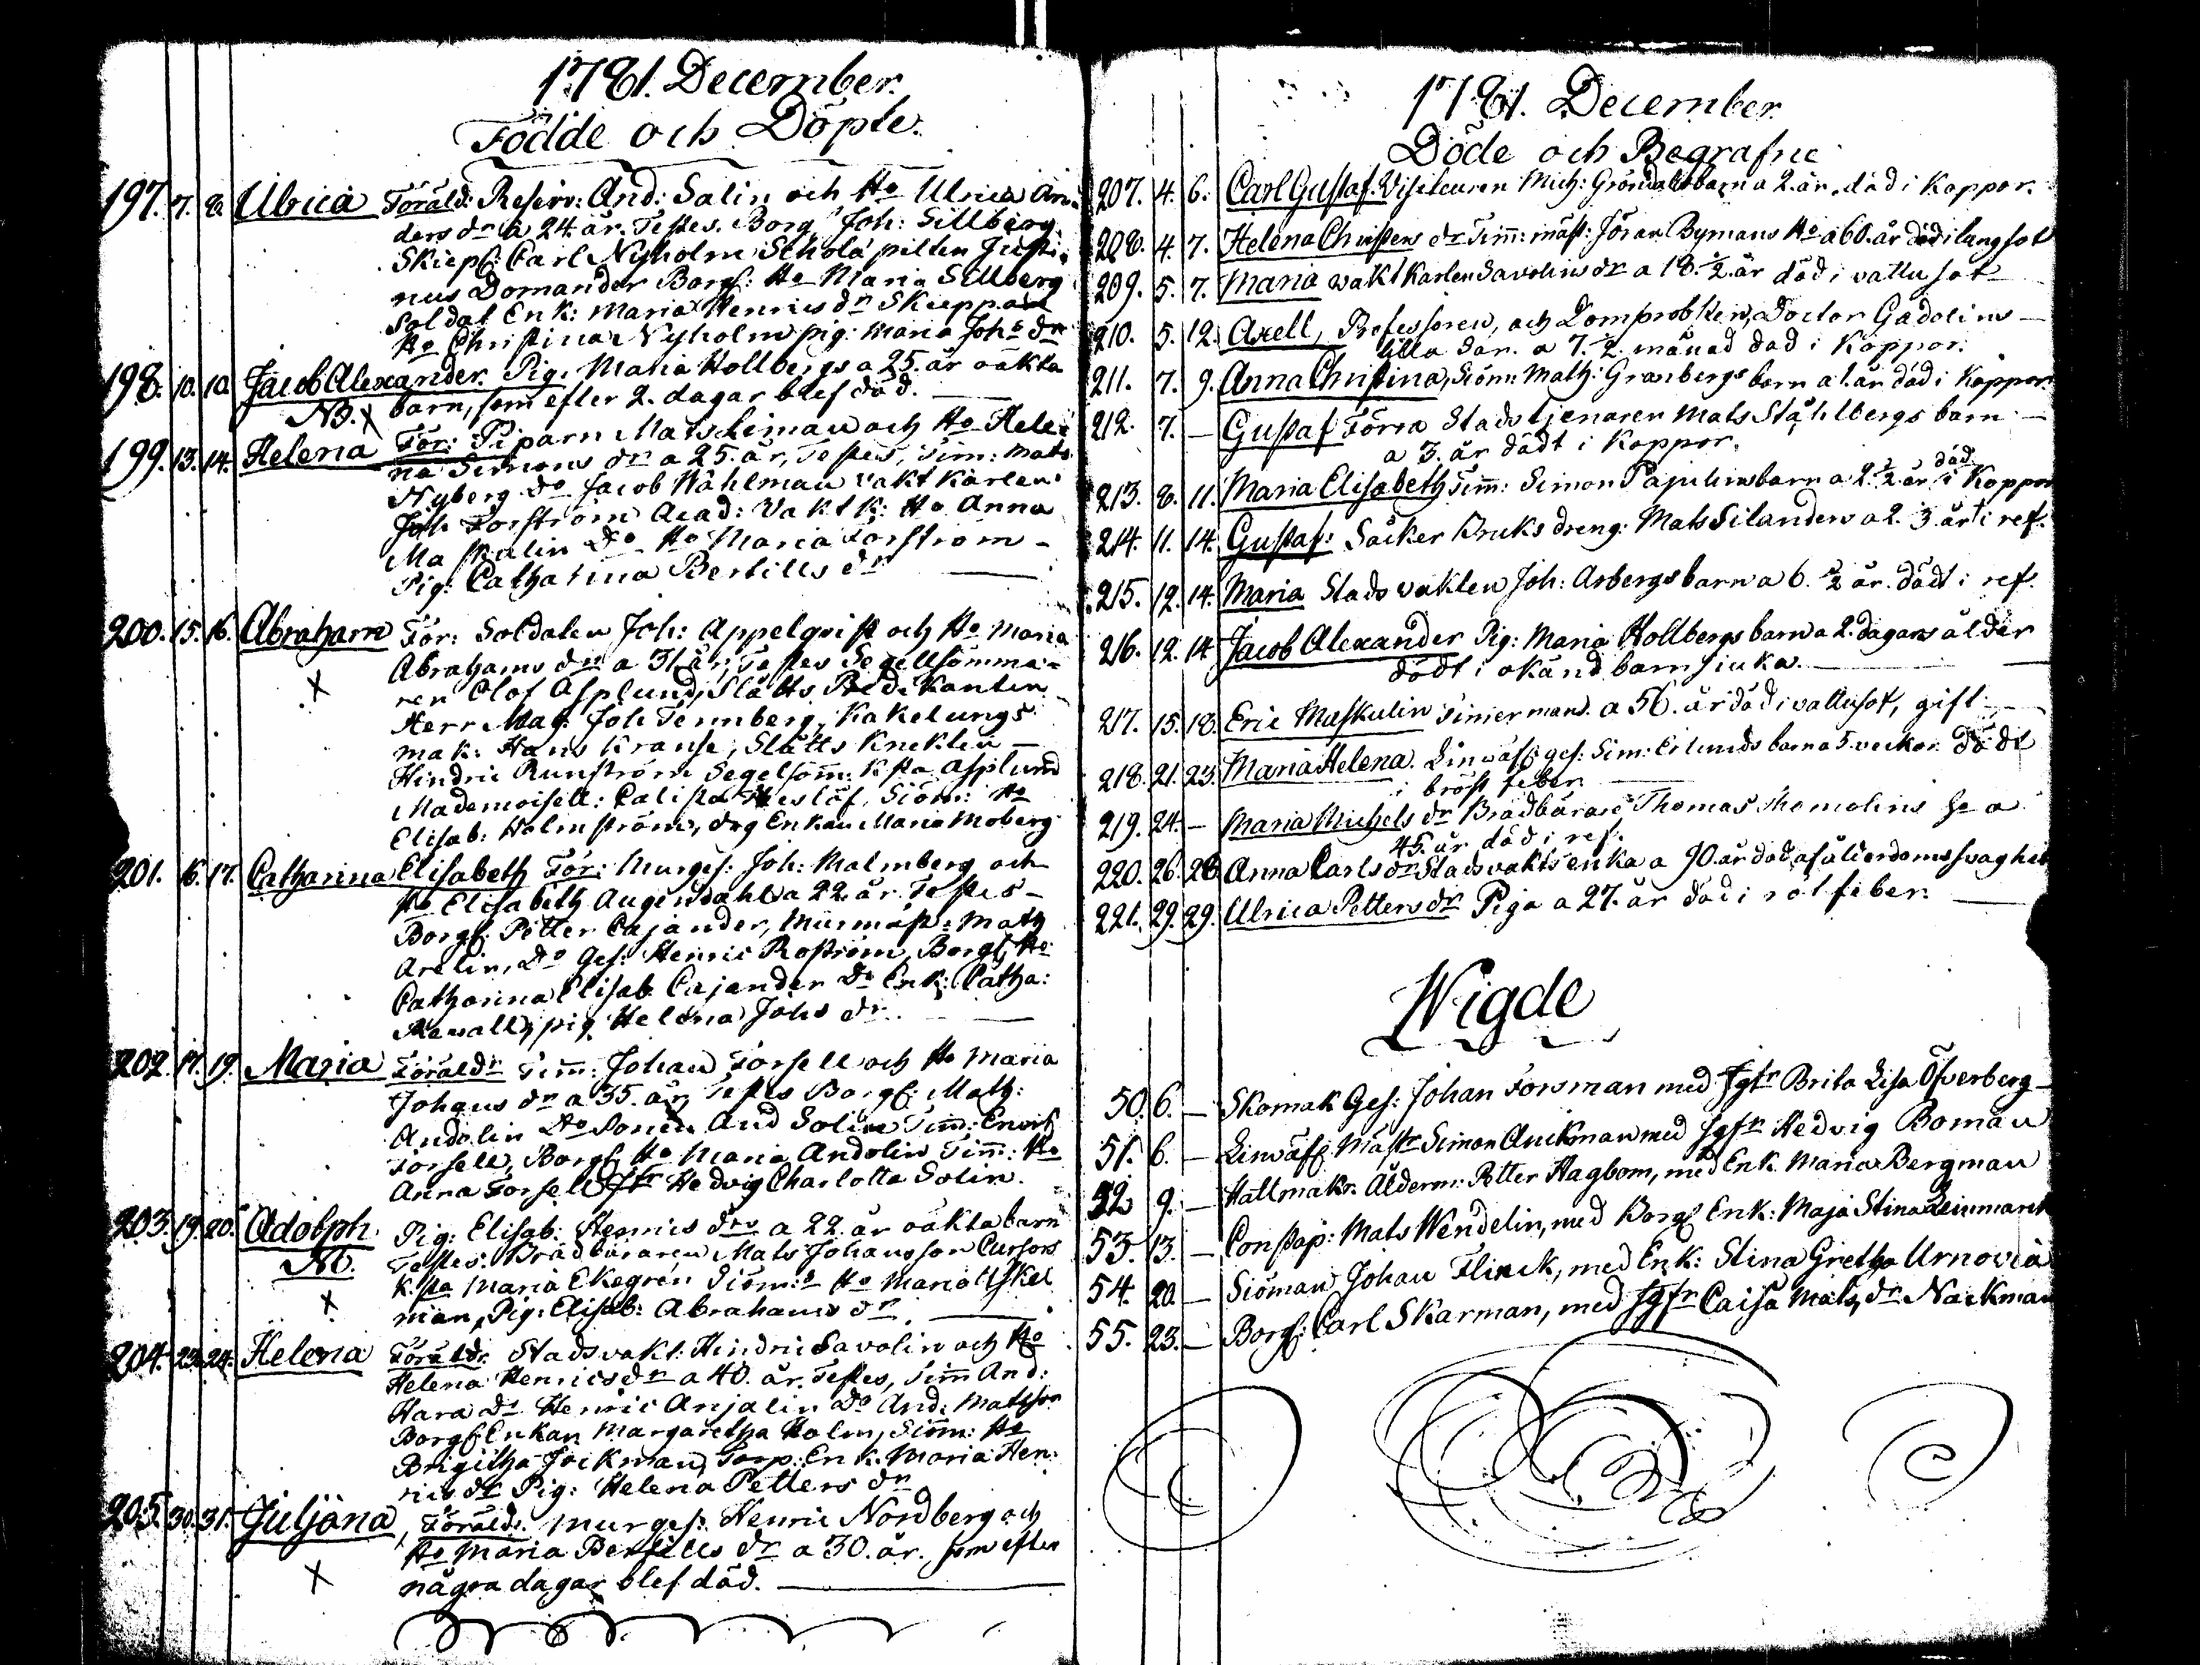 1781. December.
Födde och Döpte.
197. 7. 8. Ulrica Föräld: Reserv: And: Salin och Ho Ulrica An-
ders dr a 24 år. Testes. Borg: Joh: Sillberg
Skiepf: Carl Nyholm Schola pilten Justi-
nus Domander Borgf: Ho Maria Sillberg
Soldat Enk: Maria Henrics dr Skiepparf
Ho Christina Nyholm pig: Maria Johs dr
198. 10. 10. Jacob Alexander. Pig. Maria Hollbergs a 25. år oäkta
NB. X barn, som efter 2. dagar blef död.
199. 13. 14. Helena För: Piparn Mats Leman och Ho Hele-
na Simons dr a 25. år, Testes, Tim: Mats
Nyberg do Jacob Wahlman vakt Karlen
Joh Forström Acad: Vakt k: Ho Anna
Maskulin Do Ho Maria Forström -
Pig: Catharina Bertills dr
200. 15. 16. Abraham För: Soldaten Joh: Appelqvist och Ho Maria
Abrahams dr a 31 år, Testes Segellsömma-
X ren Olof Asplund, Slätts Predikanten
Herr Mag: Joh Tennberg, Kakelungs
mak: Hans Kranse, Slätts Knekten
Hindric Runström Segelsöm: Hsta Asplund
Mademoisell: Calista Heslöf, Siöm: Ho
Elisab: Holmströms, dog Enkan Maria Moberg
201. 16. 17. Catharina Elisabeth För: Murgef: Joh: Malmberg och
Ho Elisabeth Augendahl a 22 år. Testes -
Borgf: Petter Cajander, Murmäst: Math
Arelin, Do Gef: Henric Roström, Borgf Ho:
Catharina Elisab. Cajander Do Enk: Catha:
Rewall, pig. Helena Johs dr.
202. 17. 19. Maria Föräldr Tim: Johan Forsell och Ho Maria
Johans dr a 35. år, Testes Borgf: Math:
Andolin Do Sonen And Solin Tim: Enok
Forsell, Borgf Ho Maria Andolin Tim: Ho
Anna Forsell Jfr Hedvig Charlotta Solin.
203. 19. 20. Adolph Pig: Elisab: Henrics drs a 22. år oäkta barn
NB. Testes: Brädbäraren Mats Johansson Cursors
X K: sta Maria Ekegren Siöm: s Ho Maria Uskel
man, Pig: Elisab: Abrahams dr.
204. 23. 24. Helena Föräldr. Stads vakt: Hindric Savolin och Ho
Helena Henrics dr a 40. år. Testes, Tim And:
Hara Do Henric Anjalin Do And: Matsson
Borgf Enkan Margaretha Holm, Siöm: Ho
Brigitha Jockman, Torp: Enk: Maria Hen-
rics dr Pig: Helena Petters dr
205. 30. 31. Juljana, Föräldr. Murgef: Henric Nordberg och
Ho Maria Bertills dr a 30. år. som efter
X några dagar blef död.
1781. December.
Döde och Begrafne
207. 4. 6. Carl Gustaf. Visiteuren Mich: Gröndals barn a 2. år. död i Koppor.
208. 4. 7. Helena Christens dr Tim: mäst: Jöran Bymans Ho a 60. år död i lungsot
209. 5. 7. Maria vakt karlen Savolins dr a 18. ½. år död i vattusot
210. 5. 12. Axell, Professoren, och Domprobsten, Doctor Gadolins -
lilla son. a 7. ½. månad död i Koppor.
211. 7. 9. Anna Christina, Siöm: Math: Granbergs barn a 1. år död i Koppor.
212. 7. - Gustaf Förra Stadstjenaren Mats Ståhlbergs barn -
a 3. år dödt i Koppor.
213. 8. 11. Maria Elisabeth Tim: Simon Papulins barn a 2. ½ år död i Koppor
214. 11. 14. Gustaf: Säcker Bruks dreng: Mats Silanders a 2. 3. år i ref.
215. 12. 14. Maria Stads vakten Joh: Arbergs barn a 6. ½ år. dödt i ref.
216. 12. 14 Jacob Alexander Pig: Maria Hollbergs barn a 2. dagars ålder
dödt i okänd barnsiuka.
217. 15. 18. Eric Maskulin Timerman. a 56. år död i vattusot, gift.
218. 21. 23. Maria Helena. Linväf gef: Sim: Erlunds barn a 5. veckor. Dödt
i bröst feber.
219. 24. - Maria Michels dr Brädbärare Thomas Thomolins Ho a
45. år död i ref.
220. 26. 28 Anna Carls dr Stadsvakts enka a 90. år död af ålderdoms svaghet
221. 29. 29. Ulrica Petters dr Piga a 27. år död i rötfeber.
Wigde
50. 6. - Skomak Gef: Johan Forsman med Jgfr Brita Lisa Öfverberg
51. 6. - Linväf Mästr Simon Anckman med Jgfr Hedvig Boman
52 9. - Hattmakr. Ålderm: Petter Hagbom, med Enk Maria Bergman
53. 13. - Constap: Mats Wendelin, med Borgf Enk: Maja Stina Leinmarck
54. 20. - Siöman Johan Flinck, med Enk: Stina Gretha Urnovia
55. 23. - Borgf: Carl Skarman, med Jgfr Caisa Mats dr Nackman